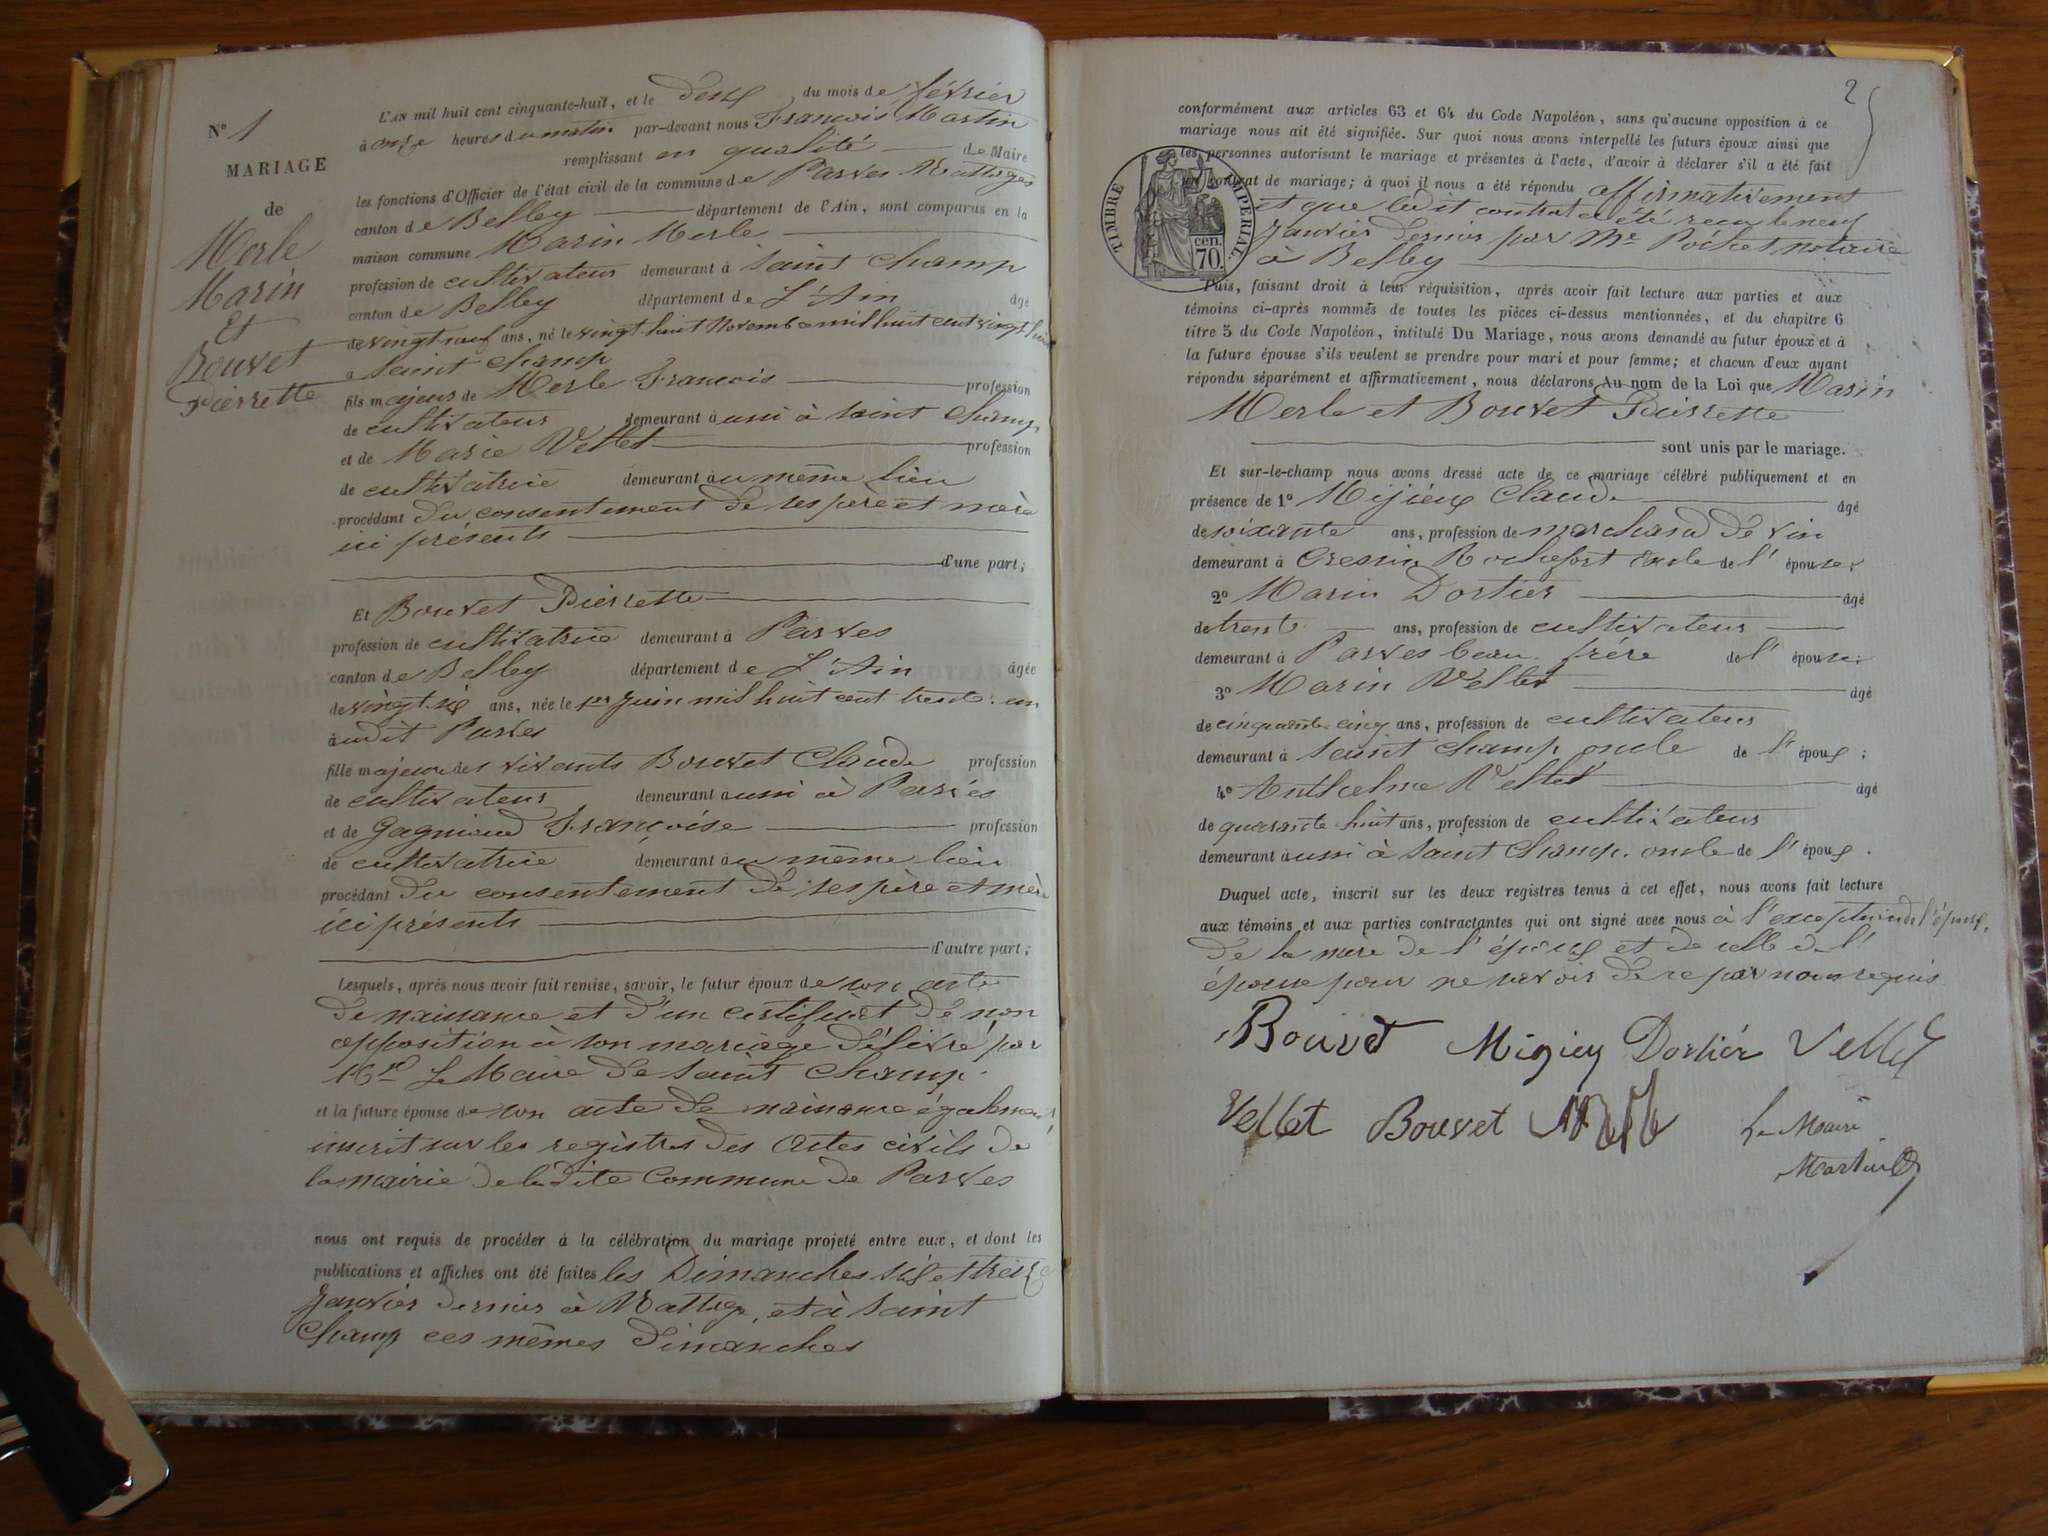 N° 1
MARIAGE
de
Merle
Marin
Et
Bouvet
Pierrette
L'AN mil huit cent cinquante-huit, et le deux du mois de février
à onze heures du matin par-devant nous François Martin
remplissant en qualité de Maire
les fonctions d'Officier de l'état civil de la commune de Parves Nattages
canton de Belley département de l'Ain, sont comparus en la
maison commune Marin Merle
profession de cultivateur demeurant à Saint Champ
canton de Belley département de L'Ain âgé
de vingt neuf ans, né le vingt huit Novembre mil huit cent vingt huit
à Saint Champ
fils majeur de Merle François profession
de cultivateur demeurant aussi à Saint Champ
et de Marie Vellet profession
de cultivatrice demeurant au même lieu
procédant du consentement de ses père et mère
ici présents
d'une part;
Et Bouvet Pierrette
profession de cultivatrice demeurant à Parves
canton de Belley département de L'Ain âgée
de vingt six ans, née le 1er Juin mil huit cent trente un
audit Parves
fille majeure des vivants Bouvet Claude profession
de cultivateur demeurant aussi à Parves
et de Gagnioud Françoise profession
de cultivatrice demeurant au même lieu
procédant du consentement de ses père et mère
ici présents
d'autre part;
Lesquels, après nous avoir fait remise, savoir, le futur époux de son acte
de naissance et d'un certificat de non
opposition à son mariage délivré par
Mr Le Maire de Saint Champ
et la future épouse de son acte de naissance également
inscrit sur les registres des actes civils de
la mairie de la dite Commune de Parves
nous ont requis de procéder à la célébration du mariage projeté entre eux, et dont les
publications et affiches ont été faites les Dimanches six et treize
Janvier dernier à Nattage, et à Saint
Champ ces mêmes dimanches
2
conformément aux articles 63 et 64 du Code Napoléon, sans qu'aucune opposition à ce
mariage nous ait été signifiée. Sur quoi nous avons interpellé les futurs époux ainsi que
les personnes autorisant le mariage et présentes à l'acte, d'avoir à déclarer s'il a été fait
un contrat de mariage; à quoi il nous a été répondu affirmativement
et que ledit contrat a été reçu le neuf
Janvier dernier par Me notaire
à Belley
TIMBRE IMPERIAL
70 cen.
Puis, faisant droit à leur réquisition, après avoir fait lecture aux parties et aux
témoins ci-après nommés de toutes les pièces ci-dessus mentionnées, et du chapitre 6
titre 5 du Code Napoléon, intitulé Du Mariage, nous avons demandé au futur époux et à
la future épouse s'ils veulent se prendre pour mari et pour femme; et chacun d'eux ayant
répondu séparément et affirmativement, nous déclarons Au nom de la Loi que Marin
Merle et Bouvet Pierrette
sont unis par le mariage.
Et sur-le-champ nous avons dressé acte de ce mariage célébré publiquement et en
présence de 1° Mijieux Claude âgé
de soixante ans, profession de marchand de vin
demeurant à Cressin Rochefort oncle de l'épouse;
2° Marin Dortier âgé
de trente ans, profession de cultivateur
demeurant à Parves beau frère de l'épouse;
3° Marin Vellet âgé
de cinquante cinq ans, profession de cultivateur
demeurant à Saint Champ oncle de l'époux;
4° Anthelme Vellet âgé
de quarante huit ans, profession de cultivateur
demeurant aussi à Saint Champ. oncle de l'époux.
Duquel acte, inscrit sur les deux registres tenus à cet effet, nous avons fait lecture
aux témoins et aux parties contractantes qui ont signé avec nous à l'exception de l'époux,
de la mère de l'époux et de celle de l'
épouse pour ne savoir de ce par nous requis
Bouvet Migieu Dortier Vellet
Vellet Bouvet
Le Maire
Martin